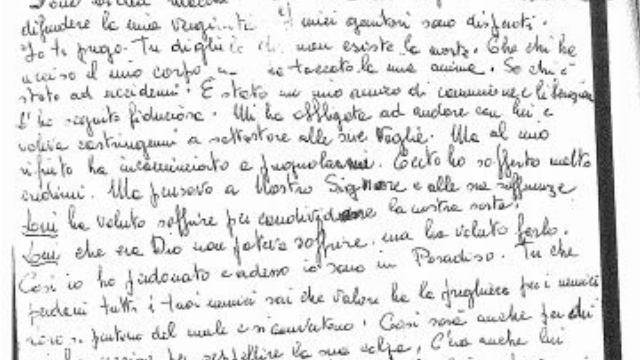 difendere la mia verginità. I miei genitori sono distrutti.
Io ti prego. Tu digli che non esiste la morte. Che chi ha
ucciso il mio corpo non ha toccato la mia anima. So chi è
stato ad uccidermi. È stato un mio amico di comunione e liberazione
L'ho seguito fiduciosa. Mi ha obbligata ad andare con lui e
voleva costringermi a sottostare alle sue voglie. Ma al mio
rifiuto ha incominciato a pugnalarmi. Certo ho sofferto molto
credimi. Ma pensavo a Nostro Signore e alle sue sofferenze
Lui ha voluto soffrire per condividere la nostra sorte.
Lui, che era Dio non poteva soffrire, ma ha voluto farlo.
Così io ho perdonato e adesso io sono in Paradiso. Tu che
perdoni tutti i tuoi nemici sai che valore ha la preghiera per i nemici
si pentono del male e si convertono. Così sarà anche per chi
per seppellire la sua colpa, C'era anche lui